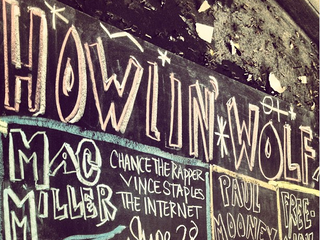 HOWLIN' WOLF
MAC
MILLER
CHANCE THE RAPPER
VINCE STAPLES
THE INTERNET
PAUL
MOONEY
FREE-